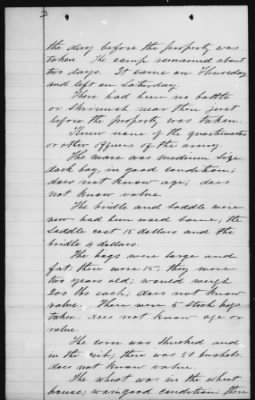 the day before the property was
taken. The camp remained about
two days. It came on Thursday
and left on Saturday.
There had been no battle
or skirmish near there just
before the property was taken.
Knew none of the quartermasters
or other officers of the army.
The mare was medium size
dark bay, in good condition;
does not know age; does
not know value.
The bridle and saddle were
new had been used some; the
saddle cost 15 dollars and the
bridle 4 dollars.
The hogs were large and
fat; there were 15; they were
two years old; would weigh
200 lbs each; does not know
value. There were 5 stock hogs
taken; does not know age or
value.
The corn was shucked and
in the crib; there was 50 bushels.
does not know value.
The wheat was in the wheat
house; was in good condition, there